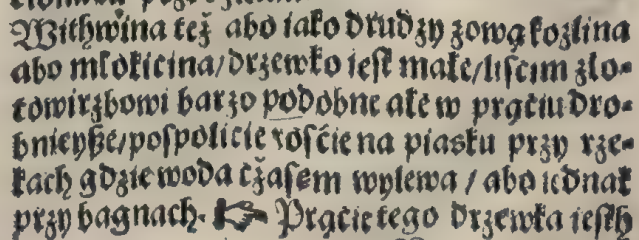 Withwina też abo iako drudzy zową kozlina
abo mlokicina/ drzewko iest małe/ liścim zlo-
towirzbowi barzo podobne ale w prąciu dro-
bnieysze/ pospolicie rosćie na piasku przy rze-
kach gdzie woda cżasem wylewa / abo iednak
przy bagnach. ☞ Prącie tego drzewka iesth